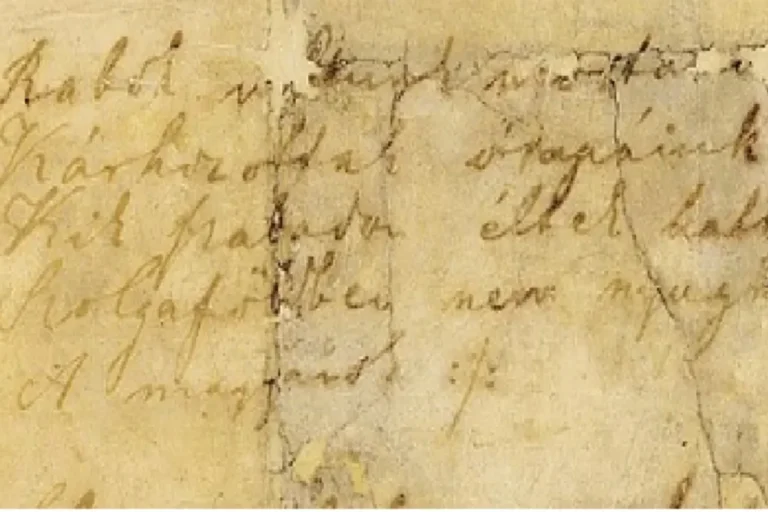 Rabok voltunk mosta
Kárhozottak ősapáink
Kik szabadon éltek hal
Szolgaföldben nem nyug
A magyarok :/: